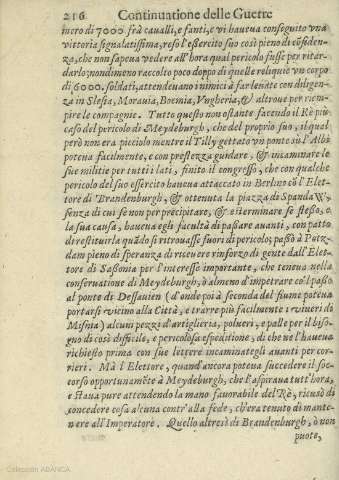 216 Continuatione delle Guerre
mero di 7000 frà caualli, e fanti, e vi haueua conseguito vna
vittoria segnalatissima, reso l'essercito suo così pieno di cōfiden-
za, che non sapeua vedere all'hora qual pericolo fusse per ritar-
darlo; nondimeno raccolto poco doppo di quelle reliquie vn corpo
di 6000. soldati, attendeuano i nimici à far leuate con diligen-
za in Slesia, Morauia, Boemia, Vngheria, & altroue per riem-
pire le compagnie. Tutto questo non ostante facendo il Rè più
caso del pericolo di Meydeburgh, che del proprio suo, il qual
però non era picciolo mentre il Tilly gettato vn ponte sù l'Albi
poteua facilmente, e con prestezza guidare, & incaminare le
sue militie per tutti i lati, finito il congresso, che con qualche
pericolo del suo essercito haueua attaccato in Berlino cō l'Elet-
tore di Brandenburgh, & ottenuta la piazza di Spandaw,
senza di cui se non per precipitare, & esterminare se stesso, e
la sua causa, haueua egli facultà di passare auanti, con patto
di restituirla quādo si ritrouasse fuori di pericolo; passò à Putz-
dam pieno di speranza di riceuere rinforzo di gente dall'Elet-
tore di Sassonia per l'interesse importante, che teneua nella
conseruatione di Meydeburgh, ò almeno d'impetrare co'l passo
al ponte di Dessauien (d'onde poi à seconda del fiume poteua
portarsi vicino alla Città, e trarre più facilmente i viueri di
Misnia) alcuni pezzi d'artiglieria, polueri, e palle per il biso-
gno di così difficile, e pericolosa espeditione, di che ne l'haueua
richiesto prima con sue lettere incaminategli auanti per cor-
rieri. Mà l'Elettore, quand'ancora poteua succedere il soc-
corso opportunamēte à Meydeburgh, che l'aspiraua tutt'hora,
e staua pure attendendo la mano fauorabile del Rè, ricusò di
concedere cosa alcuna contr' alla fede, ch'era tenuto di mante-
nere all'Imperatore. Quello altresì di Brandenburgh, ò non
puote,
Colección ABANCA